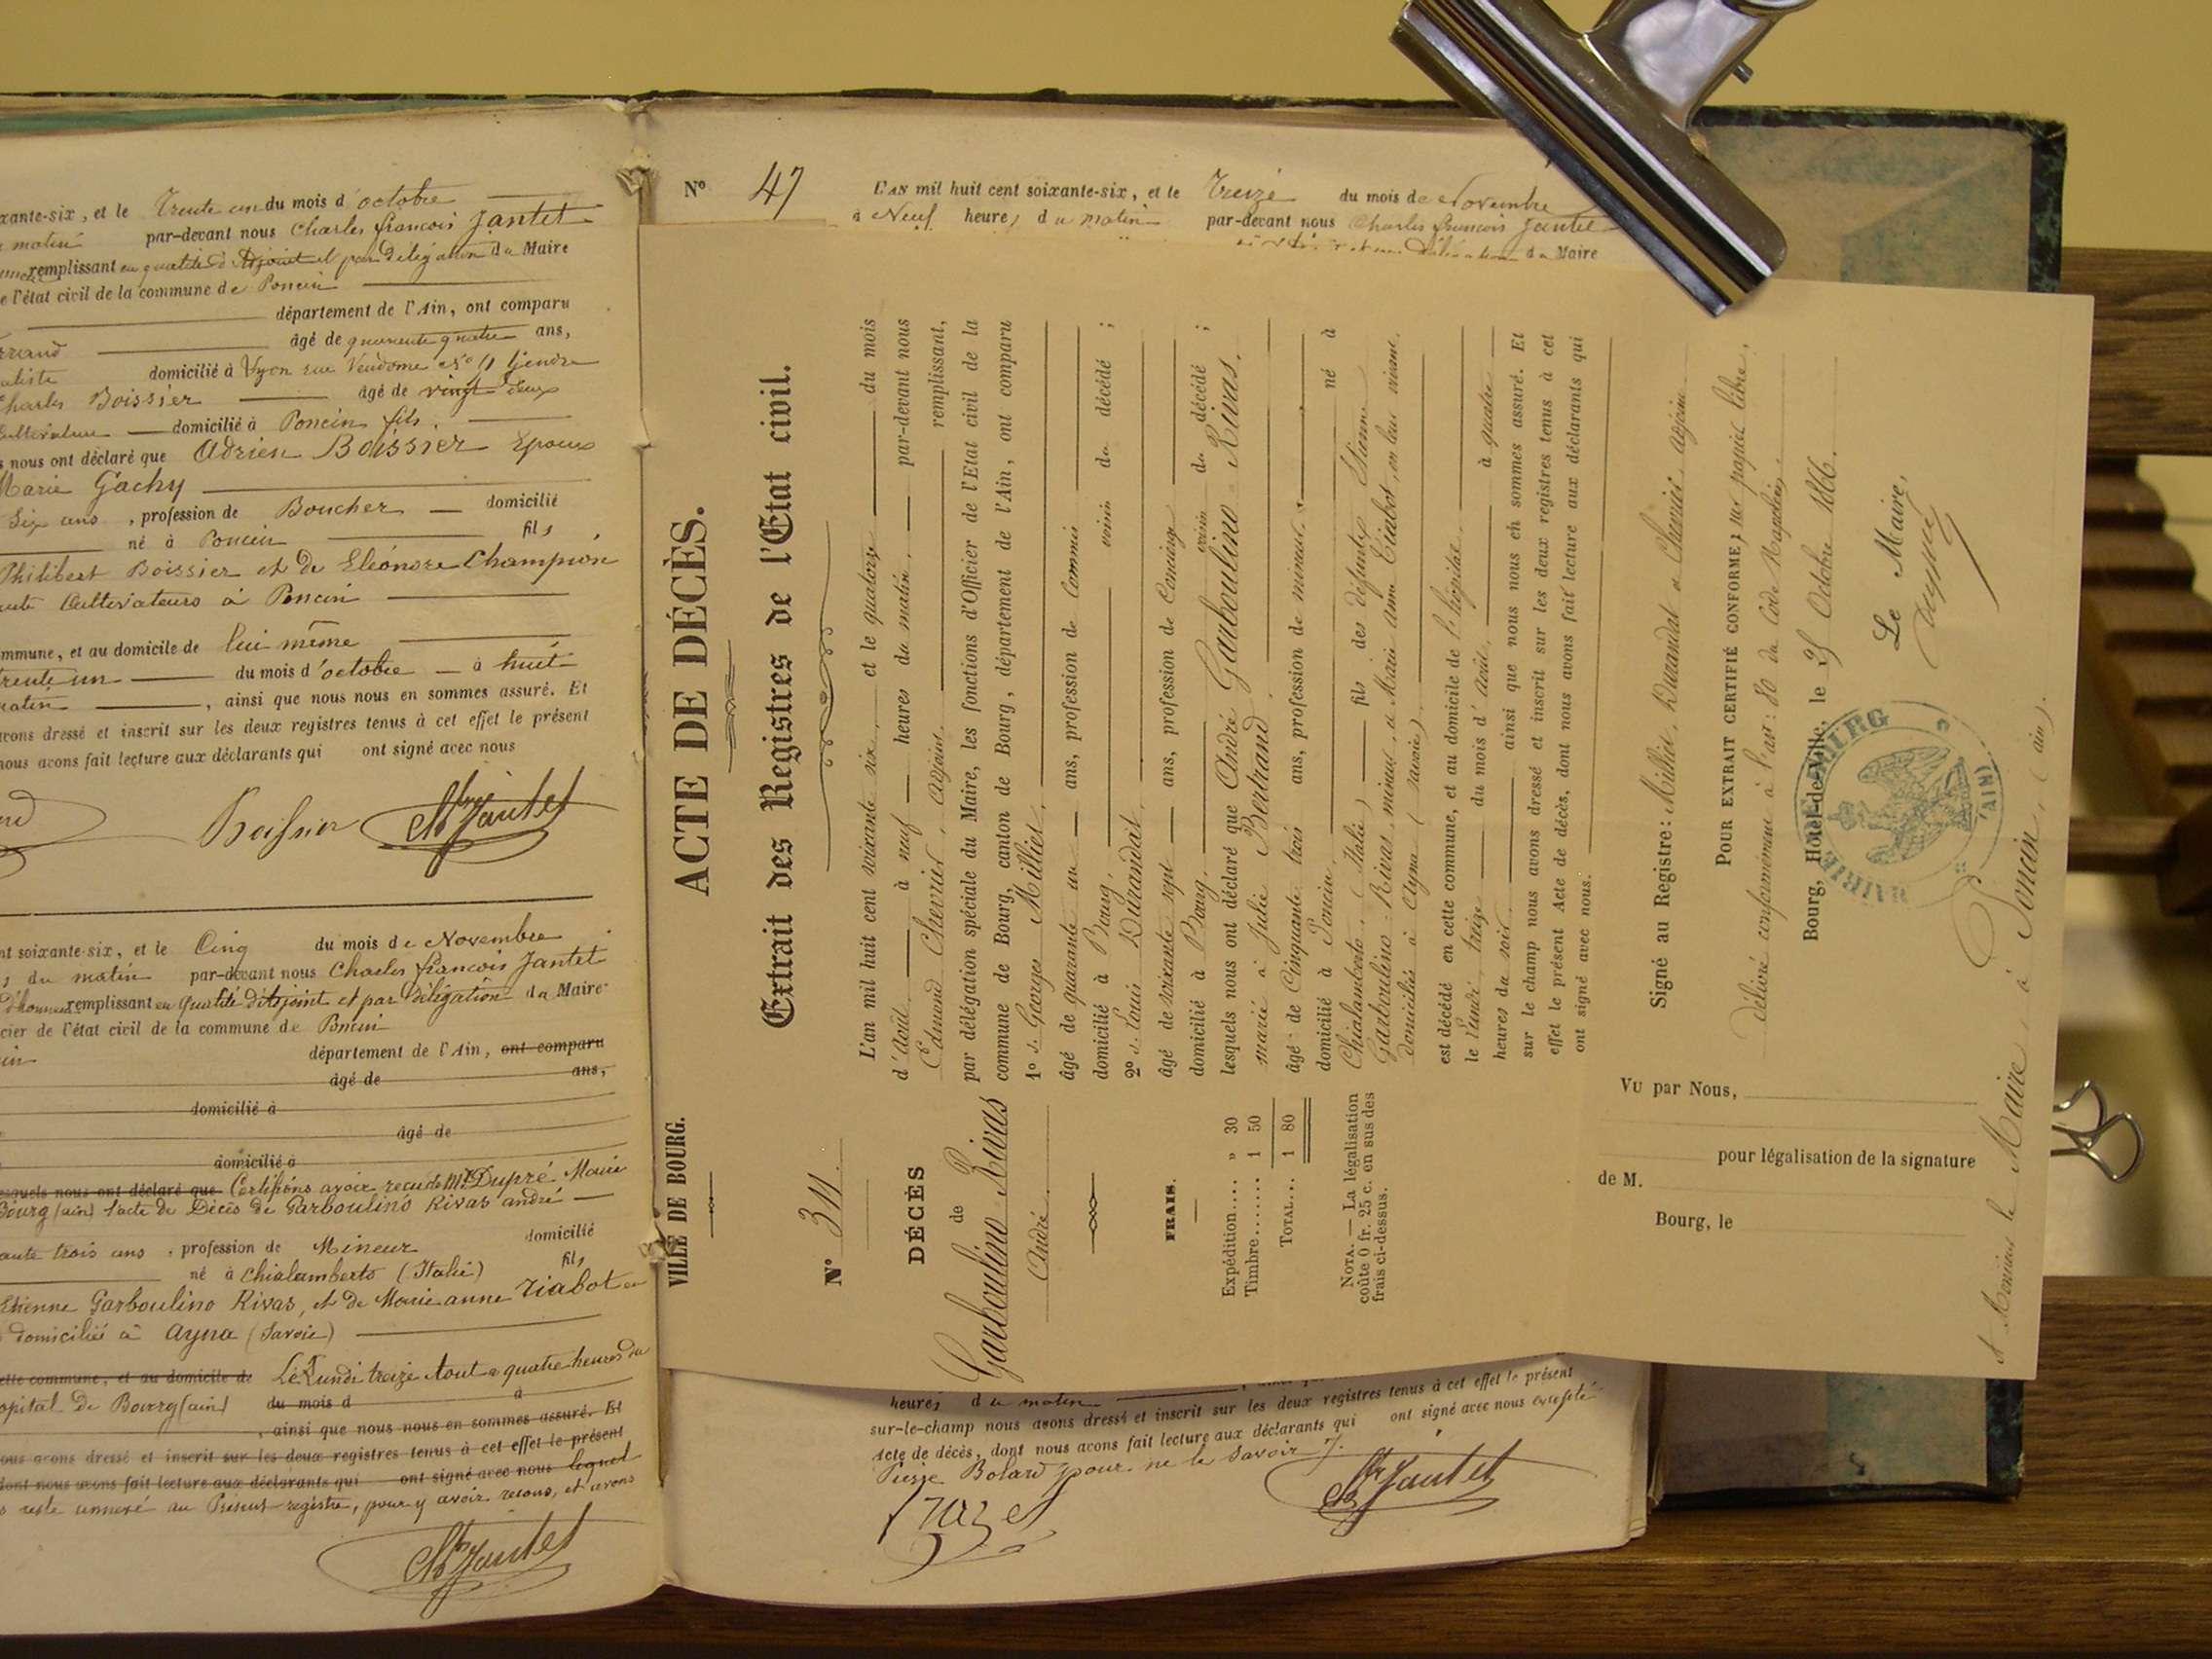 xante-six, et le Trente un du mois d'octobre
matin par-devant nous Charles françois Jantet
remplissant en qualité d'Adjoint et par délégation du Maire
e l'état civil de la commune de Poncin
département de l'Ain, ont comparu
rrand âgé de quarante quatre ans,
domicilié à Lyon rue Vendome
Charles Boissier âgé de vingt deux
Cultivateur domicilié à Poncin fils.
s nous ont déclaré que Adrien Boissier Epoux
Marie Gachy
Six ans, profession de Boucher domicilié
né à Poncin fils
Philibert Boissier et de Eléonore Champion
Cultivateurs à Poncin
mmune, et au domicile de lui même
trente un du mois d'octobre à huit
matin, ainsi que nous nous en sommes assuré. Et
avons dressé et inscrit sur les deux registres tenus à cet effet le présent
nous avons fait lecture aux déclarants qui ont signé avec nous
Boissier Ch Jantet
nt soixante-six, et le Cinq du mois de Novembre
s du matin par-devant nous Charles françois Jantet
remplissant en qualité d'Adjoint et par délégation du Maire
cier de l'état civil de la commune de Poncin
département de l'Ain, ont comparu
âgé de ans,
domicilié à
âgé de
domicilié à
esquels nous ont déclaré que Certifions avoir reçu de Mr Dupré Maire
Bourg (ain) l'acte de Décès de Garboulino Rivas andré
ante trois ans, profession de Mineur domicilié
né à Chialamberto (Italie) fils
Etienne Garboulino Rivas, et de Marie anne Tiabot en
domiciliés à Ayna (Savoie)
ette commune, et au domicile de Le Lundi treize Aout a quatre heures du
opital de Bourg (ain) du mois d à
, ainsi que nous nous en sommes assuré. Et
ous avons dressé et inscrit sur les deux registres tenus à cet effet le présent
dont nous avons fait lecture aux déclarants qui ont signé avec nous lequel
reste annexé au Présent registre, pour y avoir recours, et avons
Ch Jantet
N° 47
L'AN mil huit cent soixante-six, et le Treize du mois de Novembre
à Neuf heures du matin par-devant nous Charles françois Jantet
du Maire
VILLE DE BOURG.
N° 311.
DÉCÈS
de
Garboulino Rivas
André.
FRAIS.
Expédition.... » 30
Timbre........ 1 50
TOTAL... 1 80
NOTA. — La légalisation
coûte 0 fr. 25 c. en sus des
frais ci-dessus.
ACTE DE DÉCÈS.
Extrait des Registres de l'Etat civil.
L'an mil huit cent soixante six, et le quatorze du mois
d'août à neuf heures du matin, par-devant nous
Edmond Chevrier, Adjoint, remplissant,
par délégation spéciale du Maire, les fonctions d'Officier de l'Etat civil de la
commune de Bourg, canton de Bourg, département de l'Ain, ont comparu
1° s. Georges Milliet,
âgé de quarante un ans, profession de Commis
domicilié à Bourg, voisin du décédé ;
2° s. Louis Durandat,
âgé de soixante sept ans, profession de Concierge
domicilié à Bourg, voisin du décédé ;
lesquels nous ont déclaré que André Garboulino Rivas,
marié à Julie Bertrand,
âgé de Cinquante trois ans, profession de mineur,
domicilié à Poncin, né à
Chialamberto, (Italie) fils des défunts Etienne
Garboulino Rivas, mineur, et Marie anne Tiabot, en leur vivant,
domiciliés à Ayna (Savoie)
est décédé en cette commune, et au domicile de l'hôpital
le lundi treize du mois d'août, à quatre
heures du soir, ainsi que nous nous en sommes assuré. Et
sur le champ nous avons dressé et inscrit sur les deux registres tenus à cet
effet le présent Acte de décès, dont nous avons fait lecture aux déclarants qui
ont signé avec nous.
Signé au Registre: Milliet, Durandat et Chevrier, adjoint
POUR EXTRAIT CERTIFIÉ CONFORME; sur papier libre,
délivré conformément à l'art: 80 du Code Napoléon,
Bourg, Hôtel-de-Ville, le 25 Octobre 1866.
Le Maire,
MAIRIE DE BOURG
(AIN)
VU par Nous,
pour légalisation de la signature
de M.
Bourg, le
A Monsieur le Maire, à Poncin, (ain).
heures du matin
sur-le-champ nous avons dressé et inscrit sur les deux registres tenus à cet effet le présent
acte de décès, dont nous avons fait lecture aux déclarants qui ont signé avec nous excepté
Pierre Bolard pour ne le Savoir
Ch Jantet